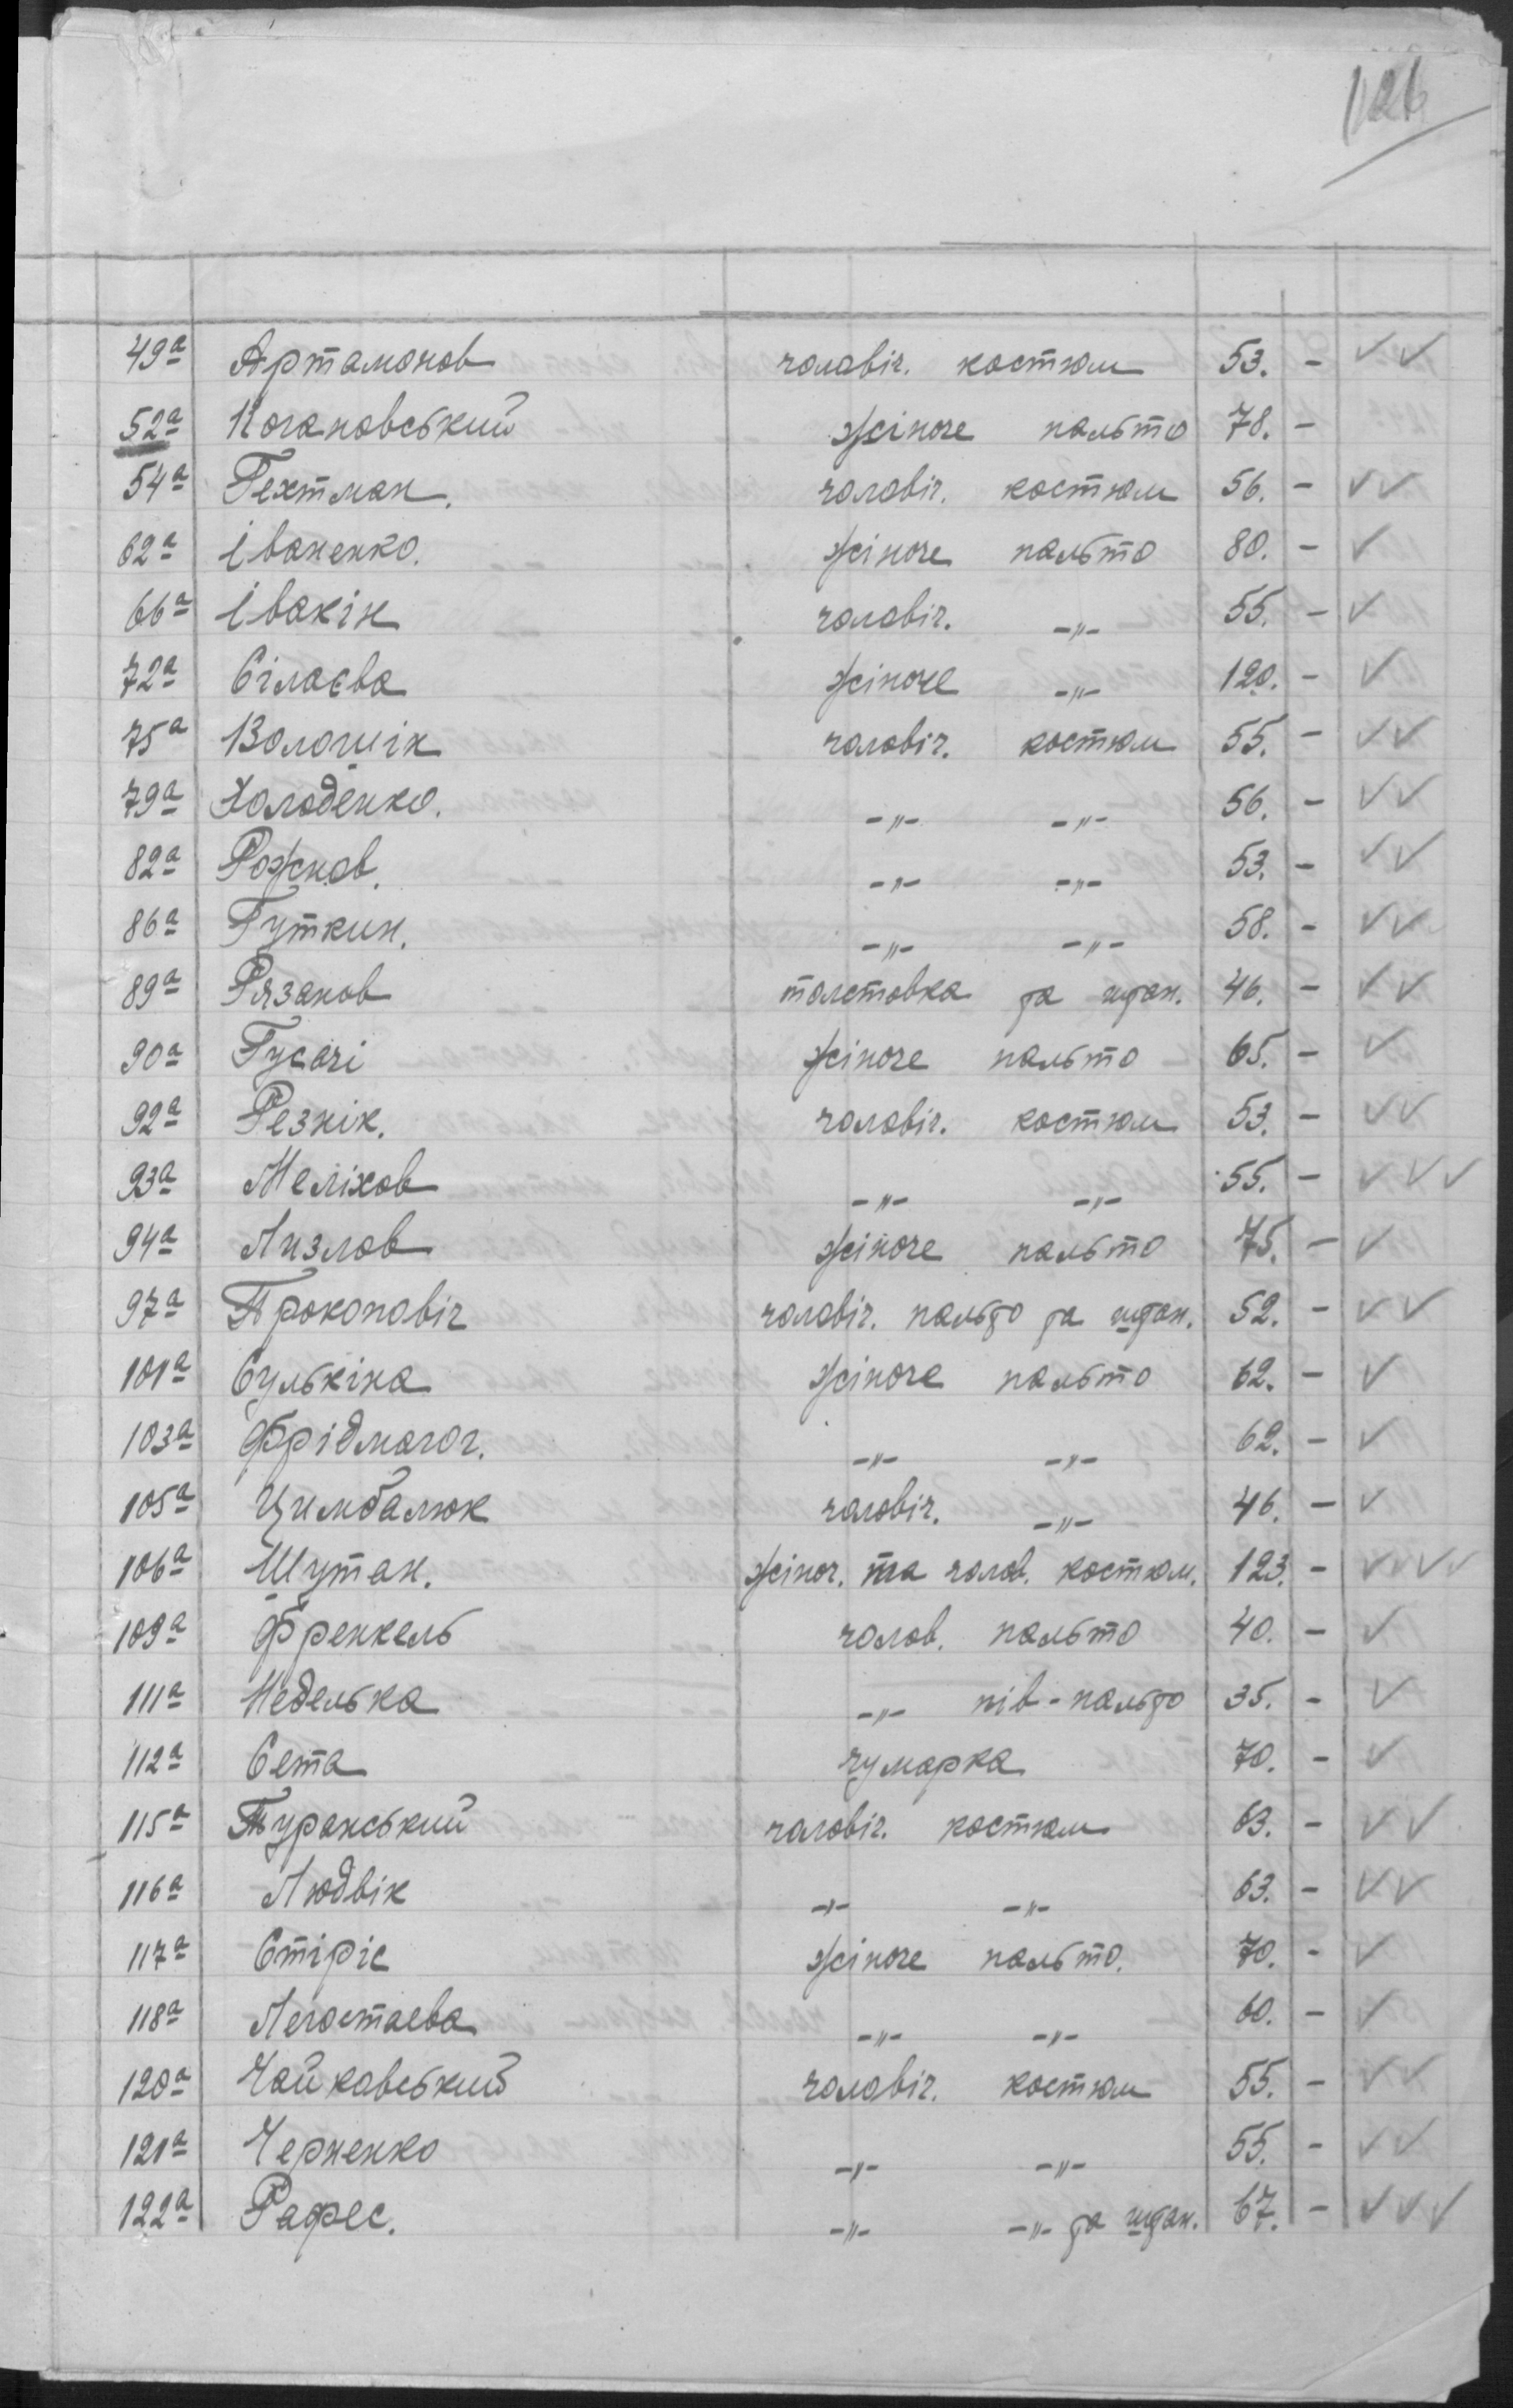 126
49а Артамонов чоловіч. костюм 53. - ✓✓
52а Когановський жіноче пальто 78. -
54а Гехтман. чоловіч. костюм 56. - ✓✓
62а Іваненко. жіноче пальто 80. - ✓
66а Івакін чоловіч. -"- 55. - ✓
72а Сілаєва жіноче -"- 120. - ✓
75а Волошік чоловіч. костюм 55. - ✓✓
79а Холоденко. -"- -"- 56. - ✓✓
82а Рожков. -"- -"- 53. - ✓✓
86а Гуткин. -"- -"- 58. - ✓✓
89а Рязанов толстовка та штан. 46. - ✓✓
90а Гусачі жіноче пальто 65. - ✓
92а Резнік. чоловіч. костюм 53. - ✓✓
93а Меліхов -"- -"- 55. - ✓✓✓
94а Лизлов жіноче пальто 75. - ✓
97а Прокоповіч чоловіч. пальто та штан. 52. - ✓✓
101а Сулькіна жіноче пальто 62. - ✓
103а -"- -"- 62. - ✓
105а Цимбалюк чоловіч. -"- 46. - ✓
106а Шутан. жіноч. та чолов. костюм. 123. - ✓✓✓✓
109а Френкель чолов. пальто 40. - ✓
111а Неделька -"- пів-пальто 35. - ✓
112а Сета чумарка 70. - ✓
115а Туранський чоловіч. костюм 63. - ✓✓
116а Людвік -"- -"- 63. - ✓✓
117а Стіріс жіноче пальто. 70. - ✓
118а Легостаева -"- -"- 60. - ✓
120а Чайковський чоловіч. костюм 55. - ✓✓
121а Черненко -"- -"- 55. - ✓✓
122а Рафес. -"- -"- та штан. 67. - ✓✓✓